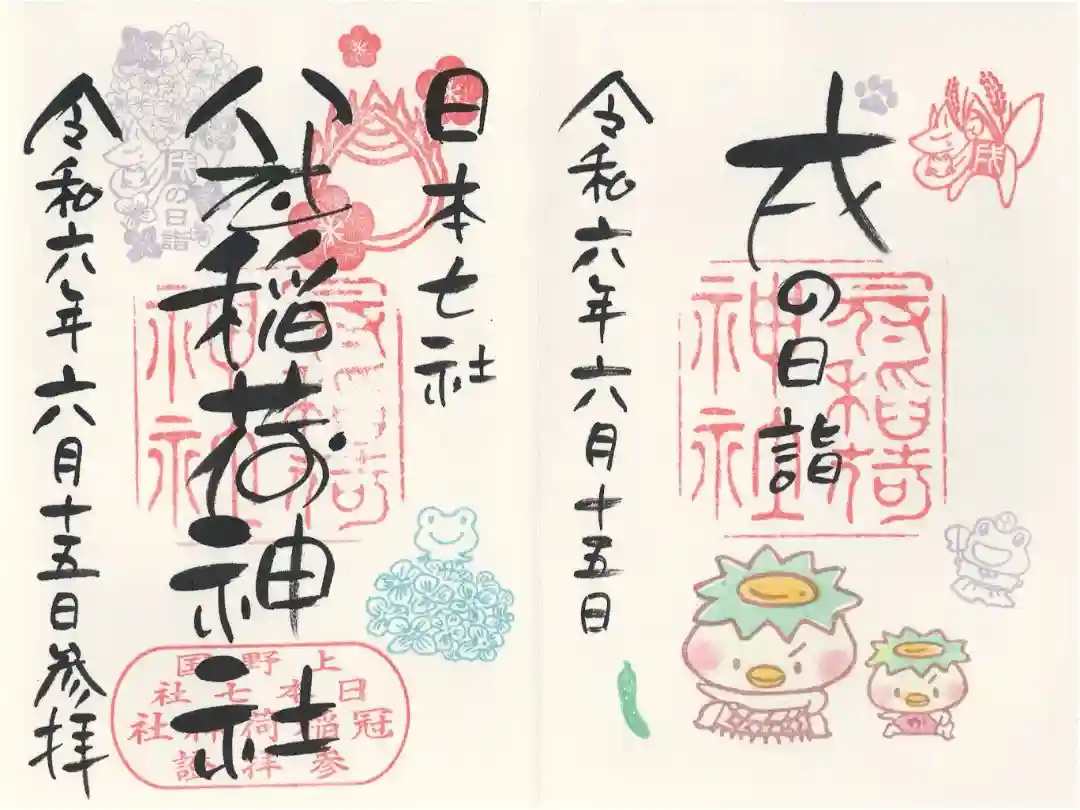 戌の日詣
戌
冠稲荷
神社
令和六年六月十五日
日本七社
冠稲荷神社
冠稲荷
神社
上野国
日本七社
冠稲荷神社
参拝証
戌の日詣
令和六年六月十五日参拝